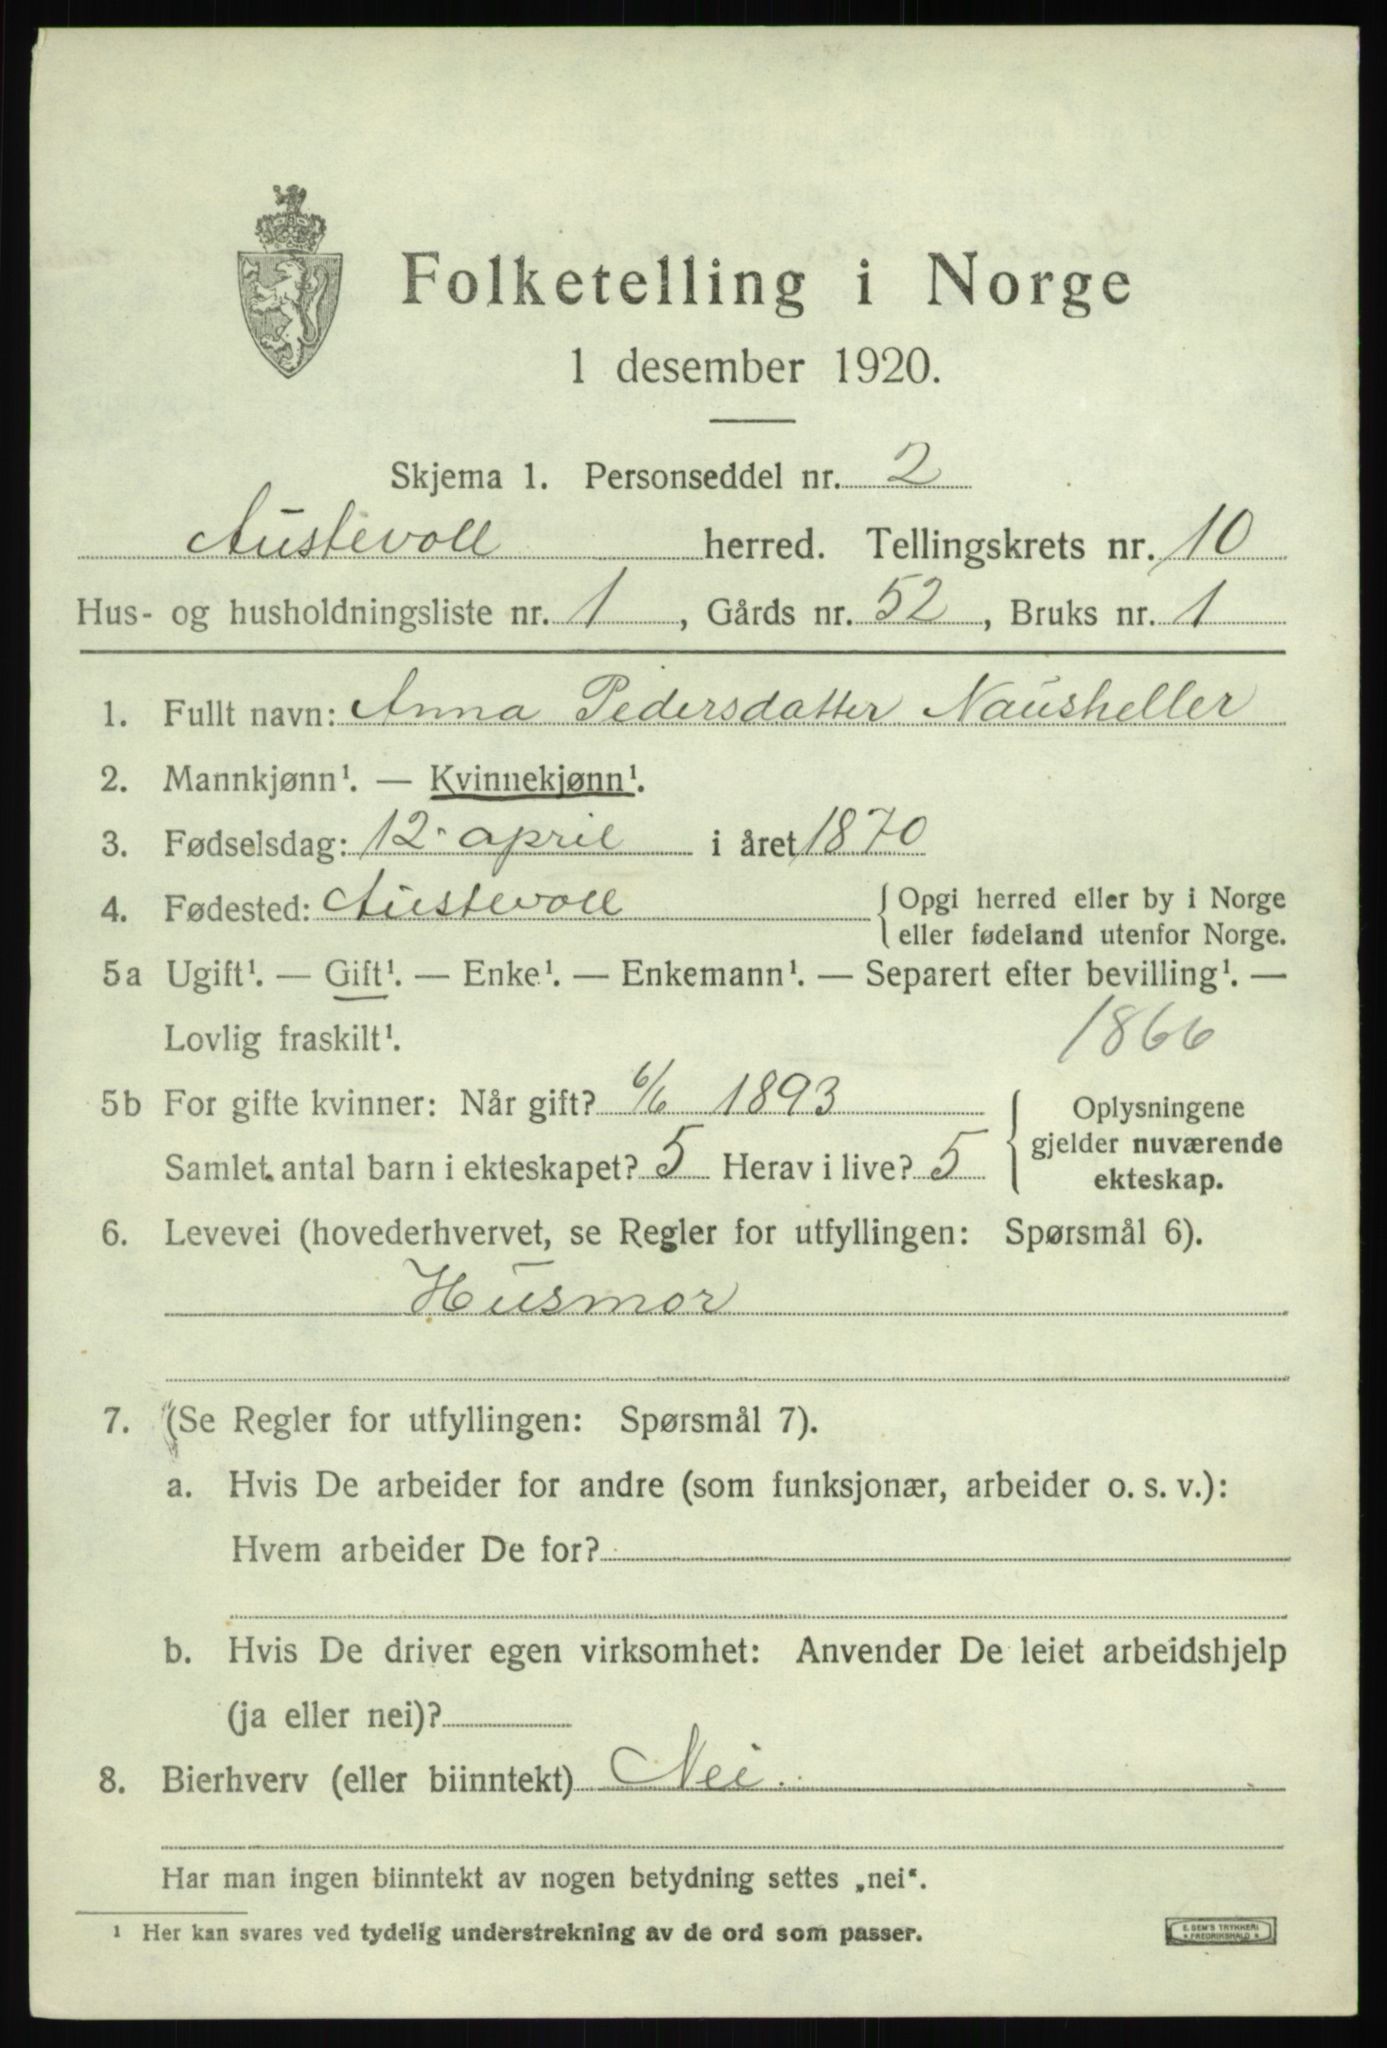 Folketelling i Norge
1 desember 1920.
Skjema 1. Personseddel nr. 2
Austevoll herred. Tellingskrets nr. 10
Hus- og husholdningsliste nr. 1, Gårds nr. 52, Bruks nr. 1
1. Fullt navn: Anna Pedersdatter Nausheller
2. Mannkjønn¹. — Kvinnekjønn¹.
3. Fødselsdag: 12. april i året 1870
4. Fødested: Austevoll { Opgi herred eller by i Norge
eller fødeland utenfor Norge.
5a Ugift¹. — Gift¹. — Enke¹. — Enkemann¹. — Separert efter bevilling¹. —
Lovlig fraskilt¹. 1866
5b For gifte kvinner: Når gift? 6/6 1893 { Oplysningene
gjelder nuværende
Samlet antal barn i ekteskapet? 5 Herav i live? 5 ekteskap.
6. Levevei (hovederhvervet, se Regler for utfyllingen: Spørsmål 6).
Husmor
7. (Se Regler for utfyllingen: Spørsmål 7).
a. Hvis De arbeider for andre (som funksjonær, arbeider o. s. v.):
Hvem arbeider De for?
b. Hvis De driver egen virksomhet: Anvender De leiet arbeidshjelp
(ja eller nei)?
8. Bierhverv (eller biinntekt) Nei.
Har man ingen biinntekt av nogen betydning settes „nei“.
¹ Her kan svares ved tydelig understrekning av de ord som passer.
E. SEM'S TRYKKERI
FREDRIKSHALD